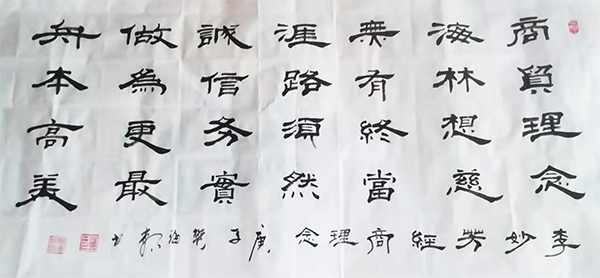 商海無涯誠做舟
貿林有路信為本
理想終須務更高
念慈當然實最美
李妙芳經商理念 庚子